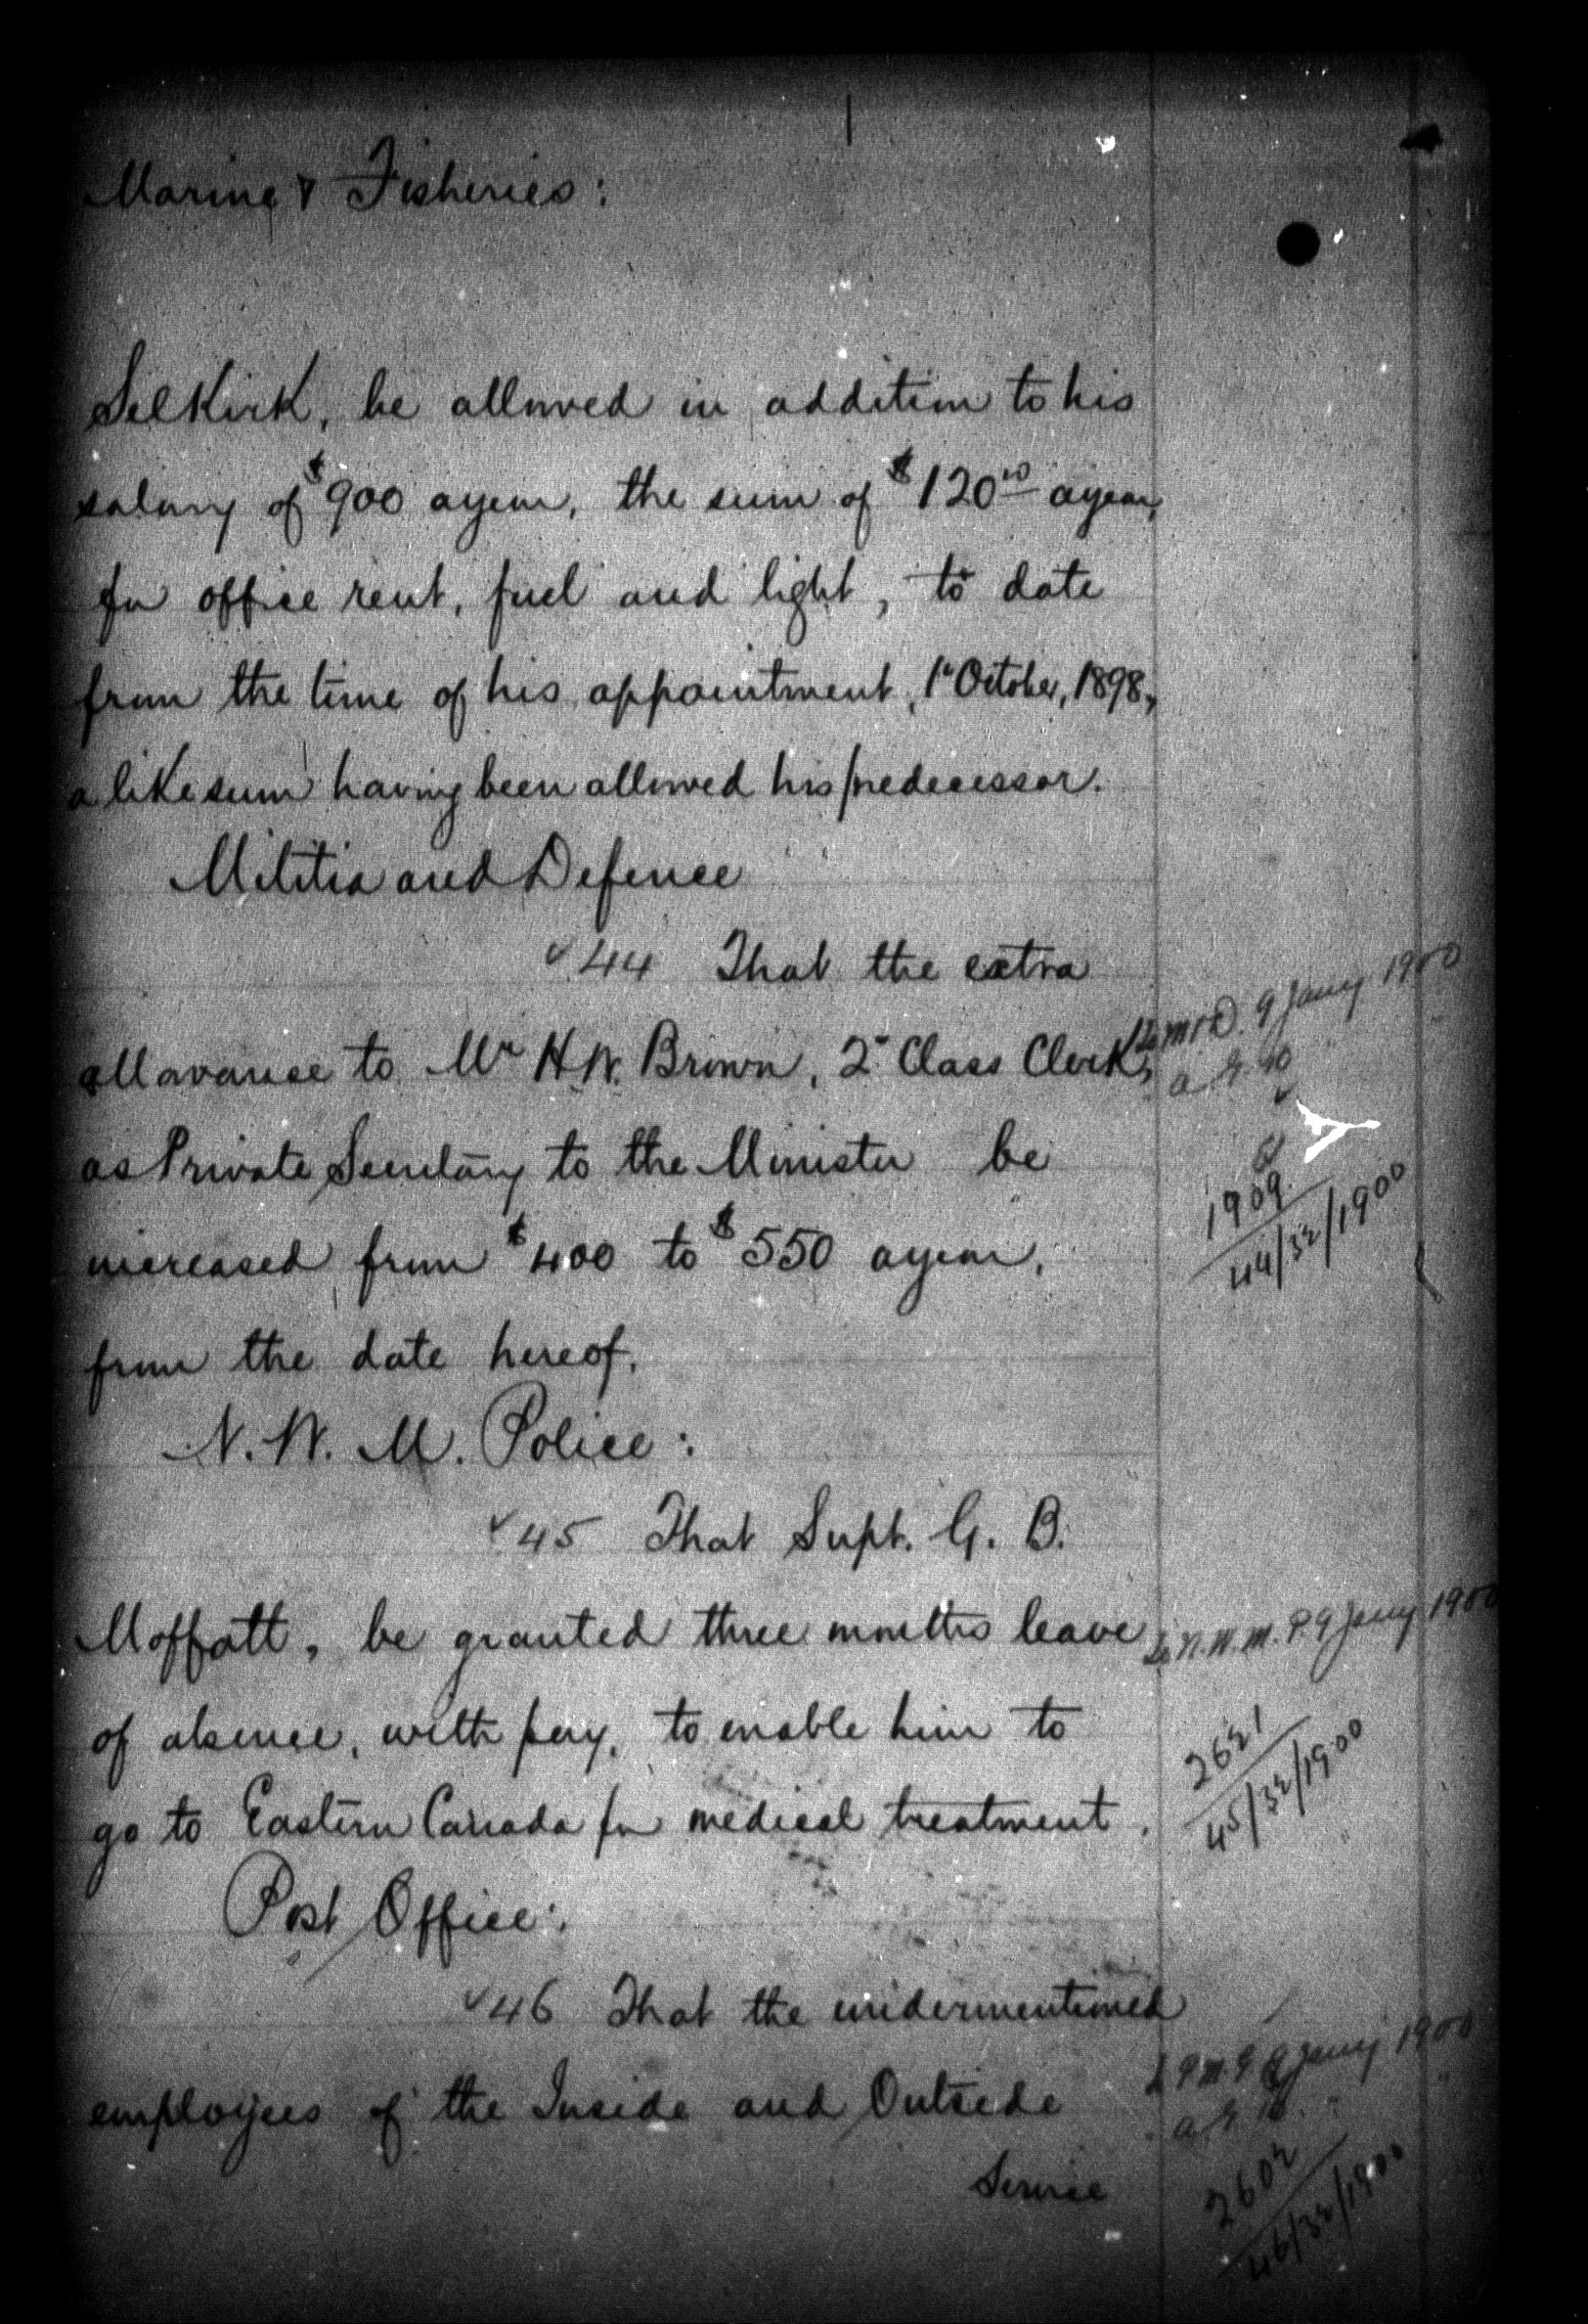 Marine & Fisheries:
Selkirk, be allowed in addition to his
salary of $900 a year, the sum of $120.00 a year,
for office rent, fuel and light, to date
from the time of his appointment, 1st October, 1898,
a like sum having been allowed his predecessor.
Militia and Defence
44 That the extra
allowance to Mr H. W. Brown, 2nd Class Clerk,
To M & D. 9 Jany 1900
as Private Secretary to the Minister be
increased from $400 to $550 a year,
1909
44/32/1900
from the date hereof.
N. W. M. Police:
45 That Supt. G. B.
Moffatt, be granted three months leave
To N. W. M. P. 9 Jany 1900
of absence, with pay, to enable him to
go to Eastern Canada for medical treatment.
2621
45/32/1900
Post Office:
46 That the undermentioned
employees of the Inside and Outside
P. M. G. 9 Jany 1900
Service
2602
46/32/1900